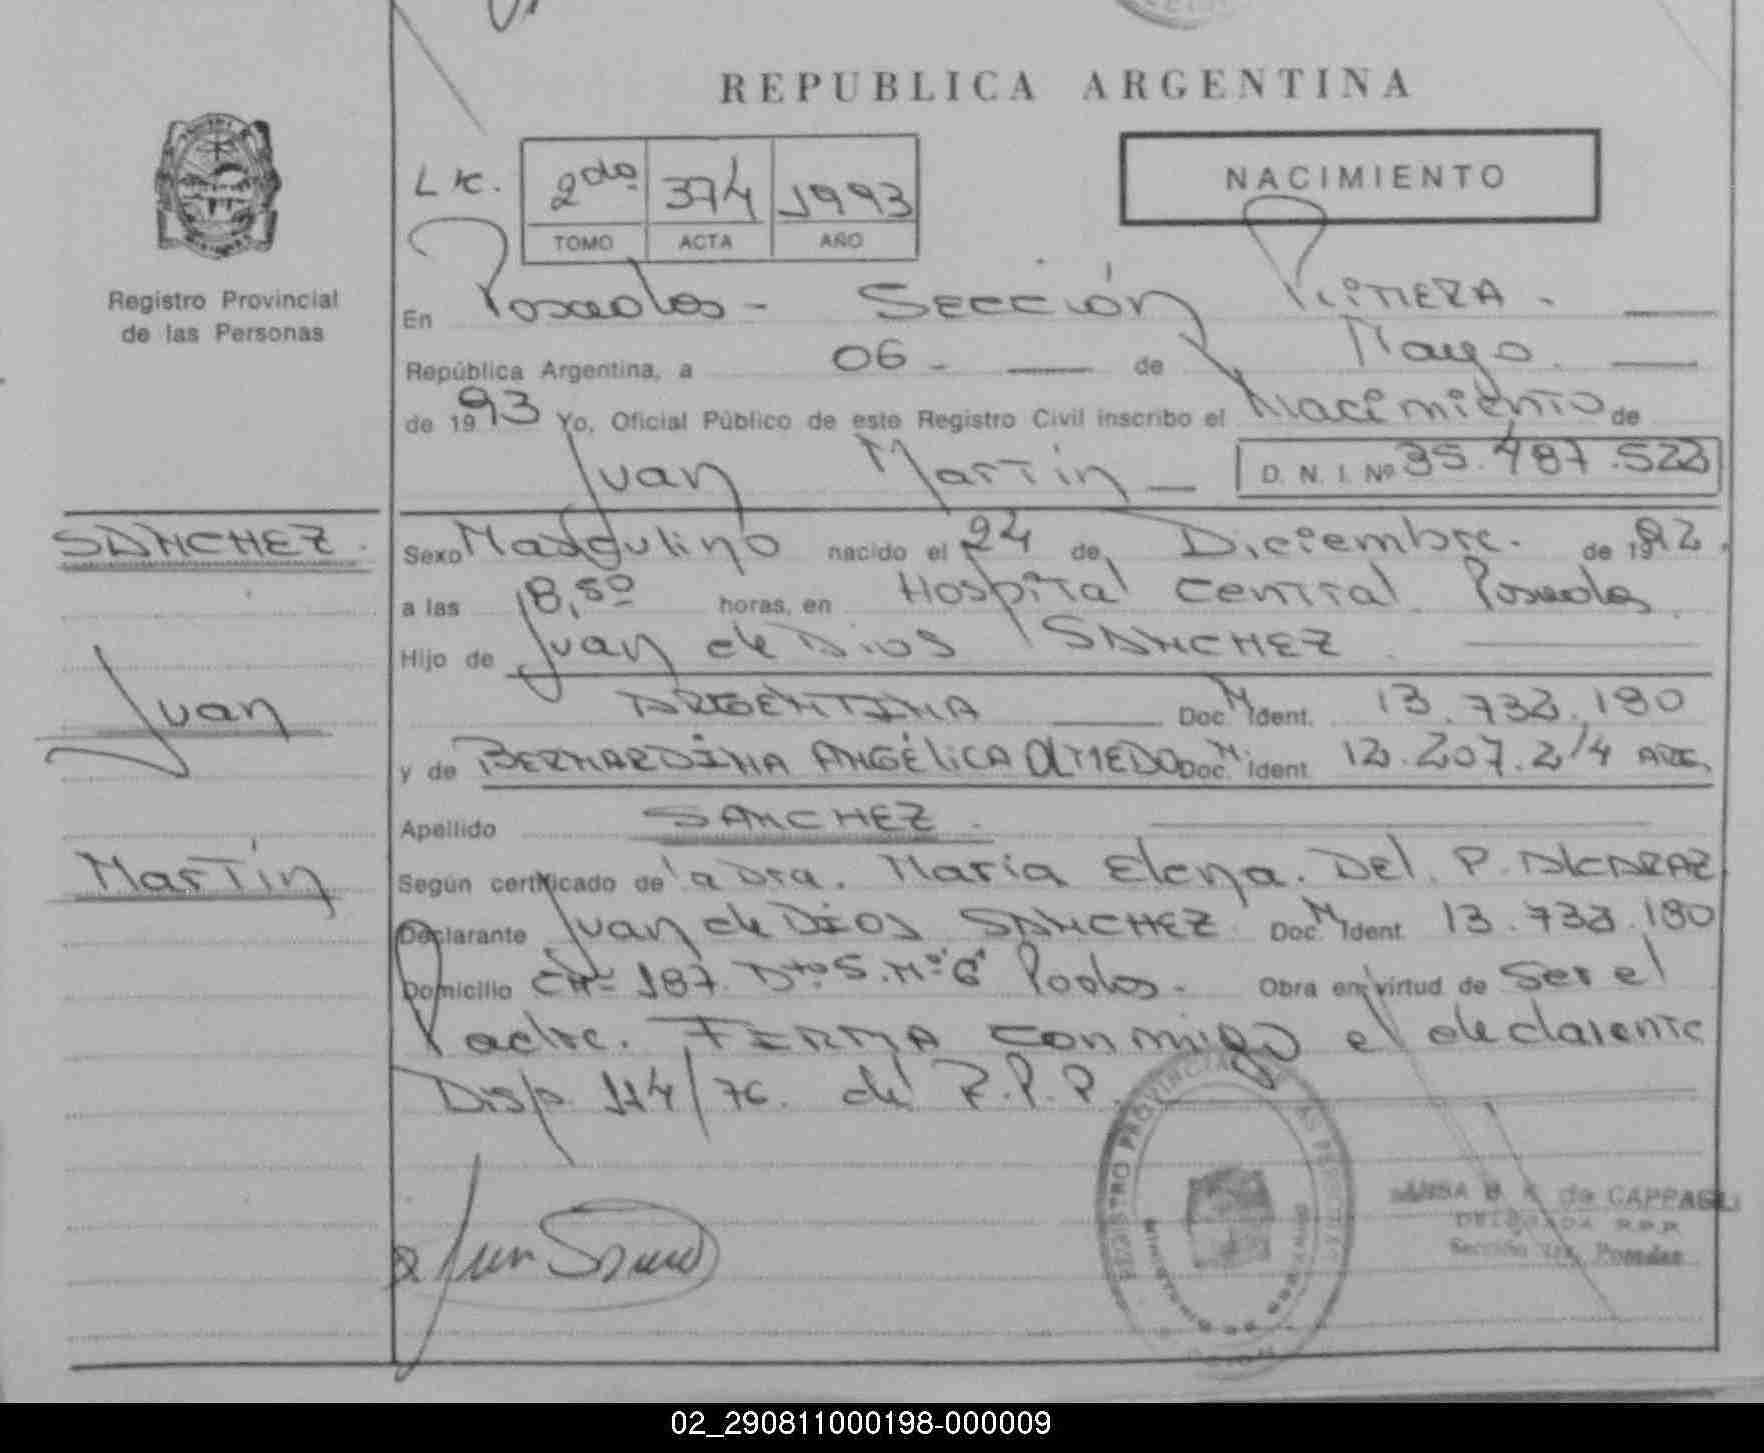 REPUBLICA ARGENTINA
NACIMIENTO
2do 374 1993
TOMO ACTA AÑO
Registro Provincial
de las Personas
En Posadas - Sección Primera.
República Argentina, a 06 - de Mayo.
de 1993 Yo, Oficial Público de este Registro Civil inscribo el Nacimiento de
Juan Martín D. N. I. Nº 35.487.522
SANCHEZ.
Juan
Martín
Sexo Masculino nacido el 24 de Diciembre. de 1992.
a las 8,50 horas, en Hospital Central Posadas.
Hijo de Juan de Dios SANCHEZ.
ARGENTINA Doc. N. Ident. 13.732.180
y de BERNARDINA ANGÉLICA OLMEDO Doc. N. Ident. 12.207.214 ARG.
Apellido SANCHEZ.
Según certificado de la Dra. María Elena. Del. P.
Declarante Juan de Dios SANCHEZ Doc. N. Ident. 13.732.180
Domicilio CHª 187. Dto S. Nº 6 Pdas. Obra en virtud de Ser el
Padre. FIRMA conmigo el declarante
Disp. 114/76. del R.P.P.
REGISTRO PROVINCIAL DE LAS PERSONAS
de CAPPAGLI
DELEGADA R.P.P.
Sección 1ra. Posadas
02_290811000198-000009